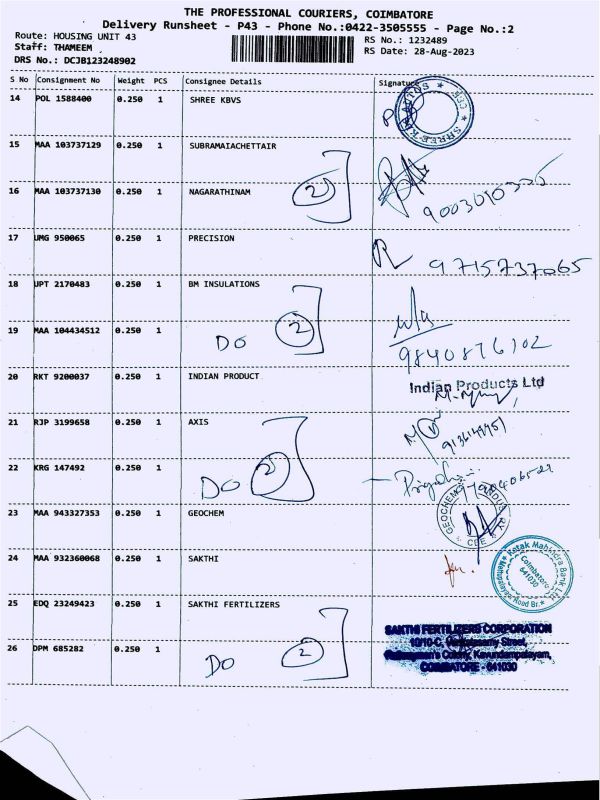 THE PROFESSIONAL COURIERS, COIMBATORE
Delivery Runsheet - P43 - Phone No.:0422-3505555 - Page No.:2
Route: HOUSING UNIT 43 RS No.: 1232489
Staff: THAMEEM RS Date: 28-Aug-2023
DRS No.: DCJB123248902
S No Consignment No Weight PCS Consignee Details Signature
14 POL 1588400 0.250 1 SHREE KBVS
15 MAA 103737129 0.250 1 SUBRAMAIACHETTAIR
16 MAA 103737130 0.250 1 NAGARATHINAM 2
17 UMG 950065 0.250 1 PRECISION 9715737065
18 UPT 2170483 0.250 1 BM INSULATIONS
19 MAA 104434512 0.250 1 DO 2 9840876102
20 RKT 9200037 0.250 1 INDIAN PRODUCT Indian Products Ltd
21 RJP 3199658 0.250 1 AXIS
22 KRG 147492 0.250 1 DO 2
23 MAA 943327353 0.250 1 GEOCHEM
24 MAA 932360068 0.250 1 SAKTHI Kotak Mahindra Bank Ltd Coimbatore 641030
25 EDQ 23249423 0.250 1 SAKTHI FERTILIZERS SAKTHI FERTILIZERS CORPORATION
26 DPM 685282 0.250 1 DO 2 Kavundampalayam,
COIMBATORE - 641030